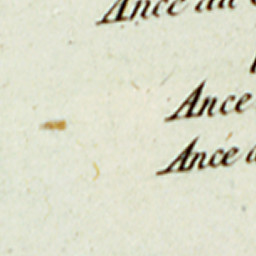 Ance au
Ance
Ance